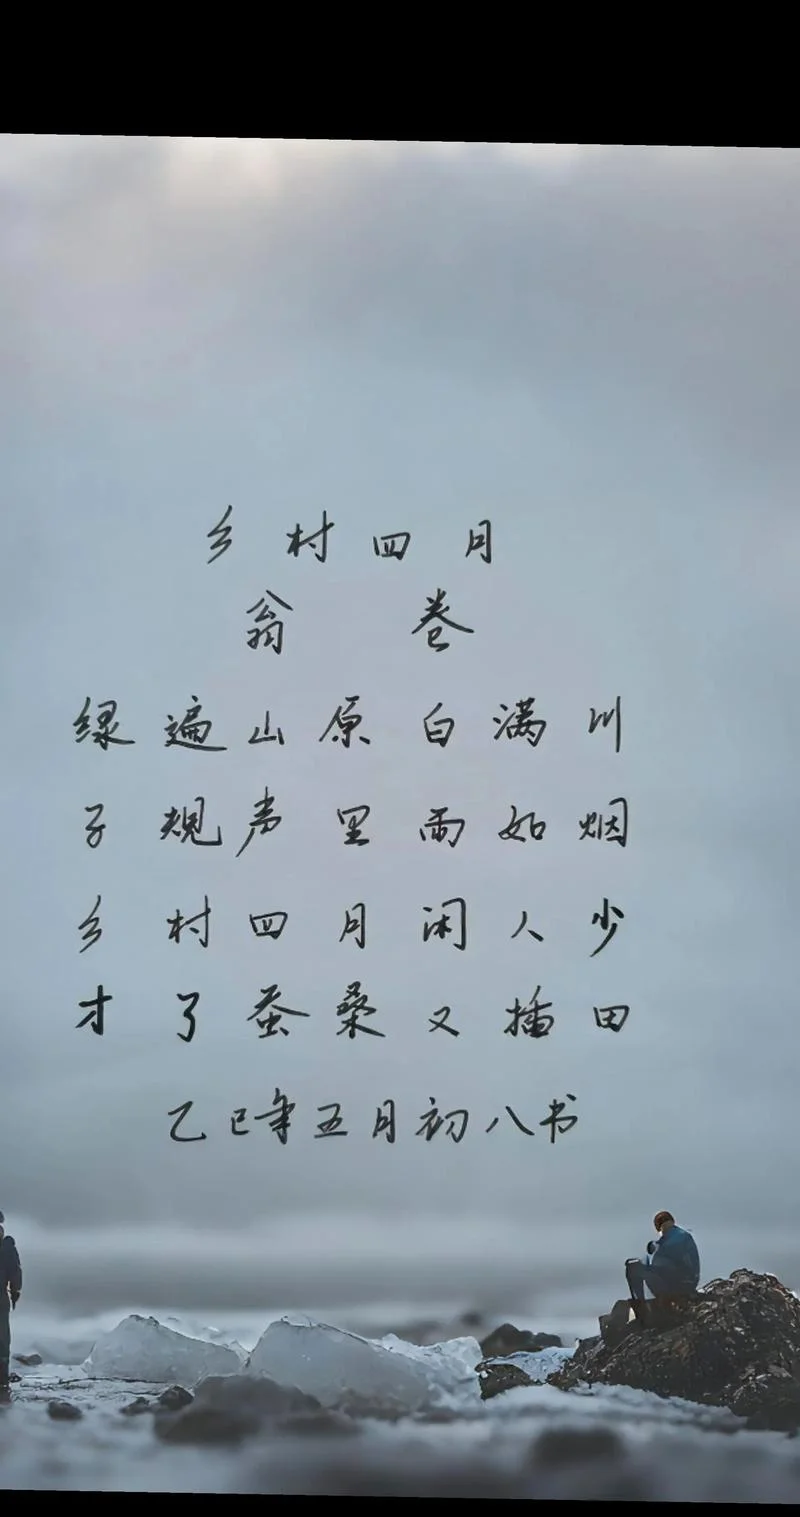 乡村四月
翁卷
绿遍山原白满川
子规声里雨如烟
乡村四月闲人少
才了蚕桑又插田
乙巳年五月初八书